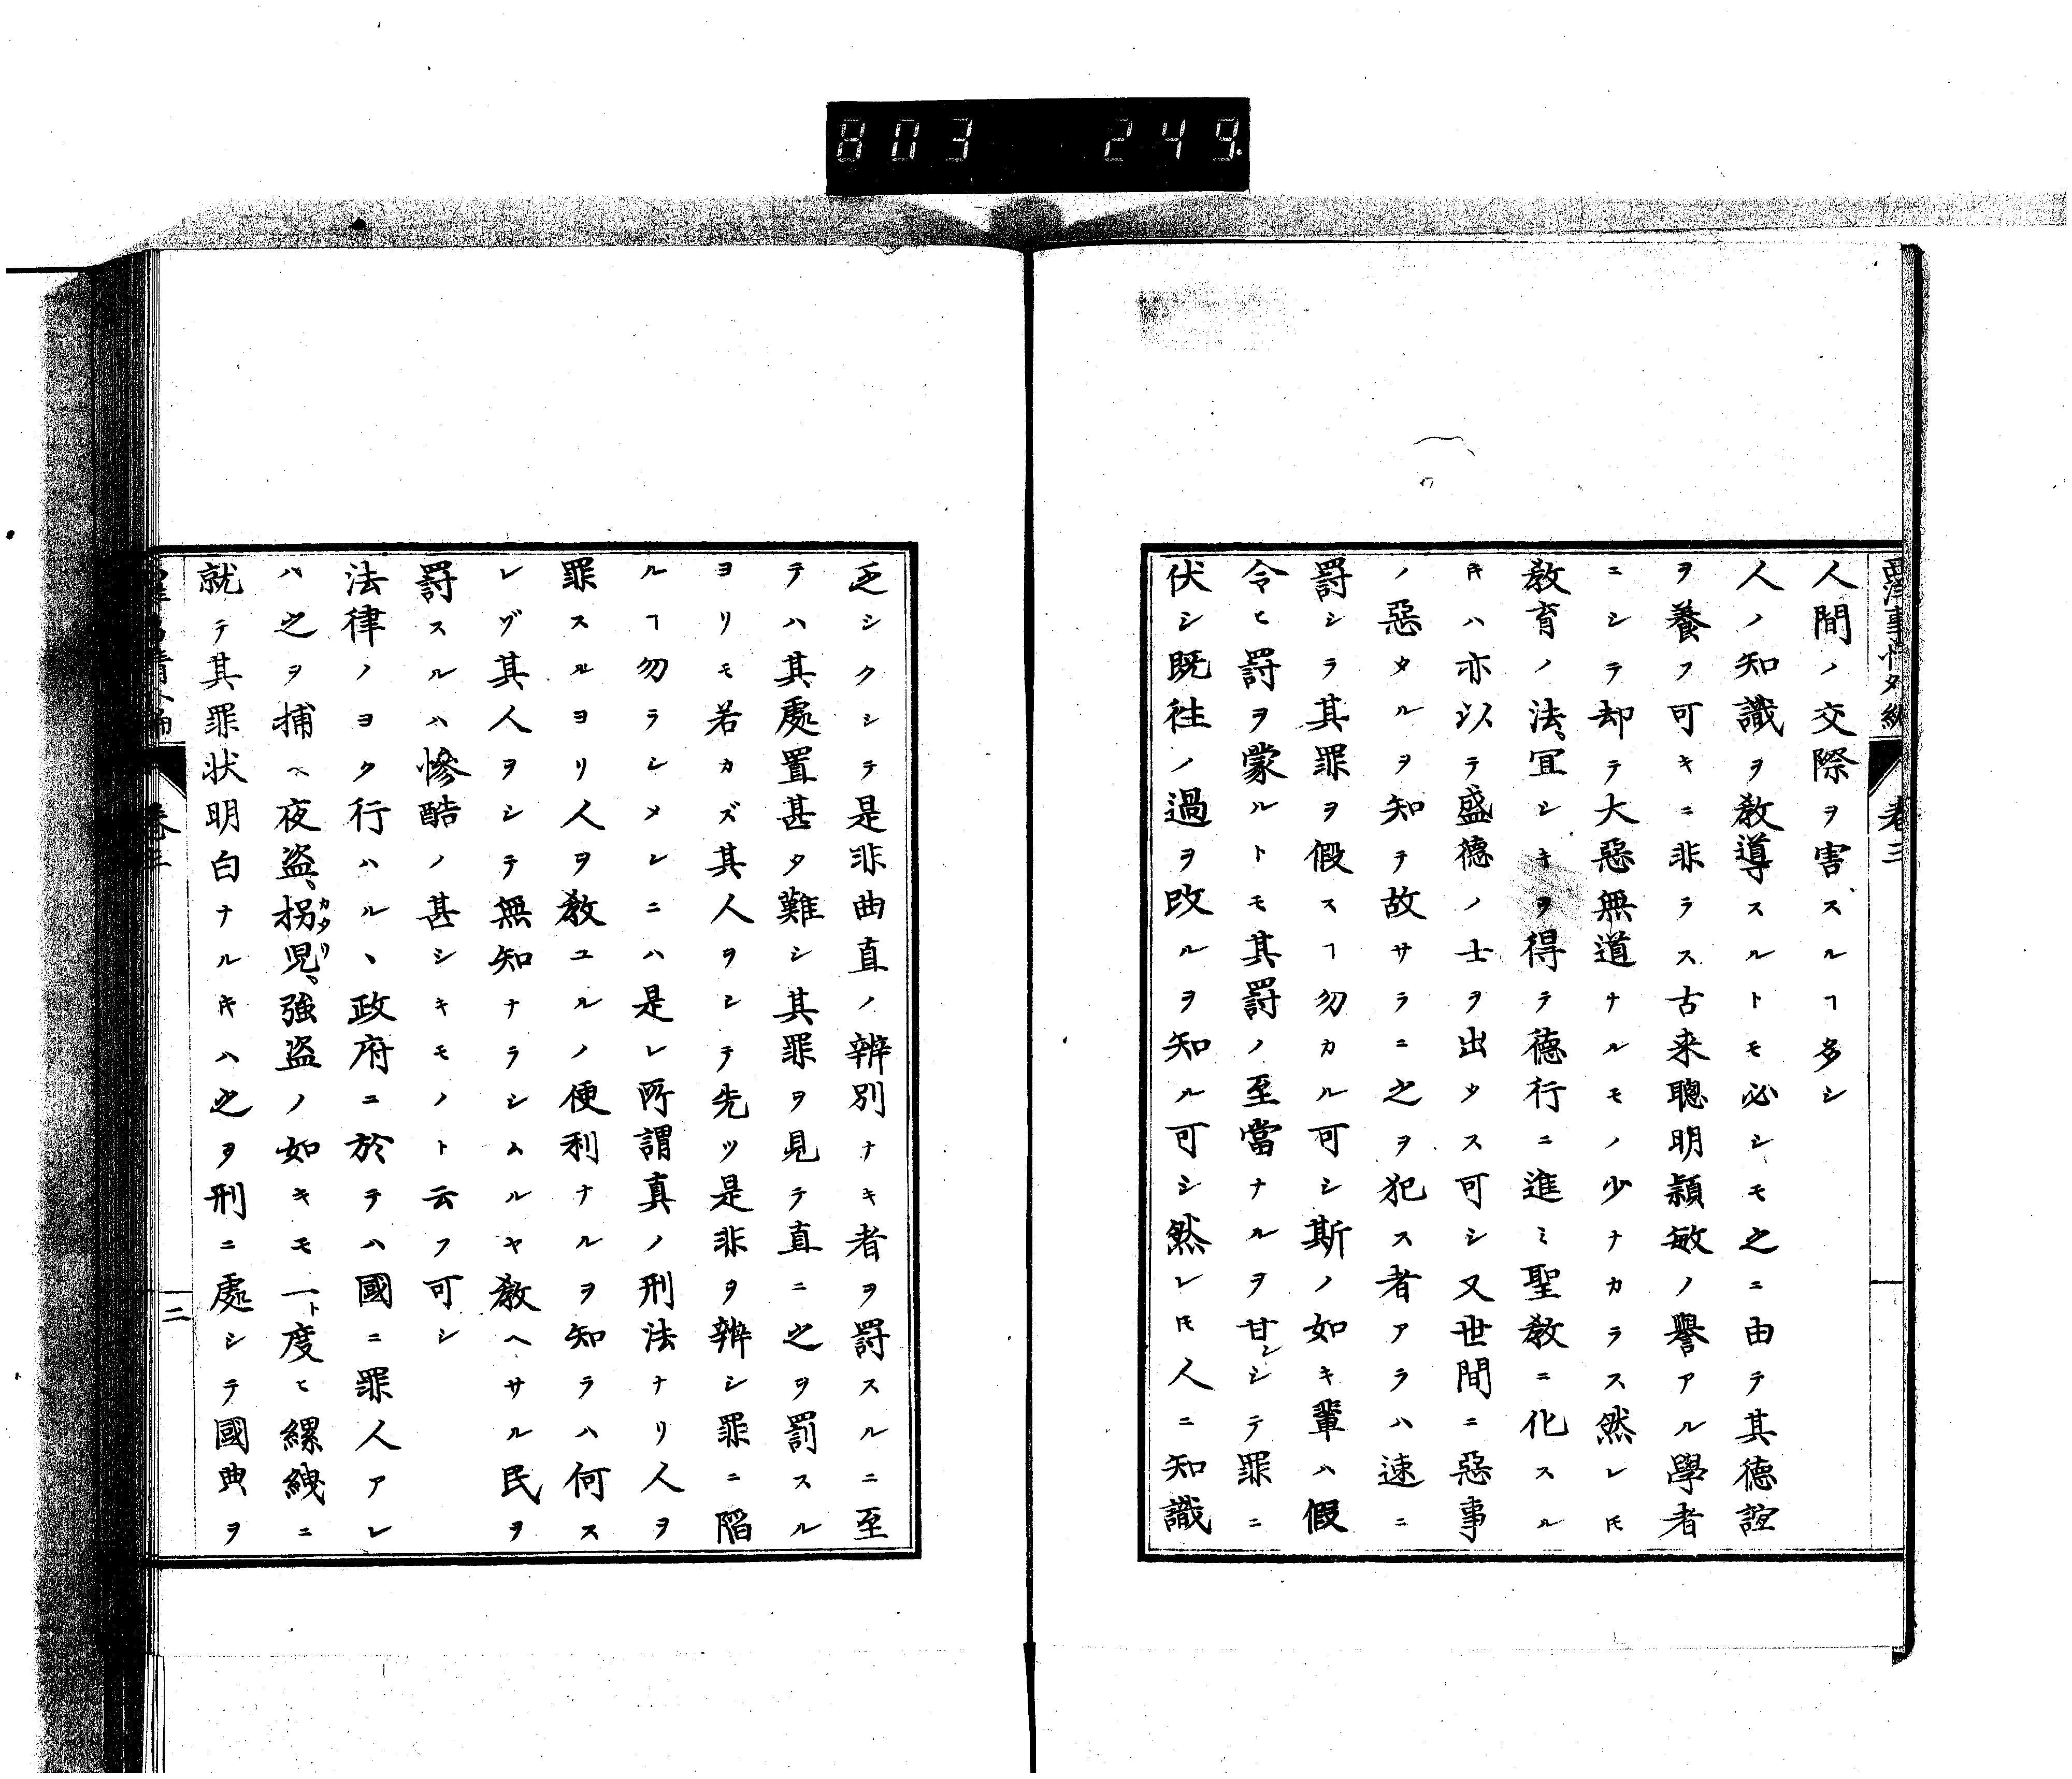 803 249
西洋事情外編 卷三
人間ノ交際ヲ害スルヿ多シ
人ノ知識ヲ教導スルトモ必シモ之ニ由テ其德誼
ヲ養フ可キニ非ラス古来聰明穎敏ノ譽アル學者
ニシテ却テ大惡無道ナルモノ少ナカラス然レ𪜈
教育ノ法、宜シキヲ得テ德行ニ進ミ聖教ニ化スル
𬼀ハ亦以テ盛德ノ士ヲ出タス可シ又世間ニ惡事
ノ惡タルヲ知テ故サラニ之ヲ犯ス者アラハ速ニ
罰シテ其罪ヲ假スヿ勿カル可シ斯ノ如キ輩ハ假
令ヒ罰ヲ蒙ルトモ其罰ノ至當ナルヲ甘ンシテ罪ニ
伏シ既往ノ過ヲ改ルヲ知ル可シ然レ𪜈人ニ知識
乏シクシテ是非曲直ノ辨別ナキ者ヲ罰スルニ至
テハ其處置甚タ難シ其罪ヲ見テ直ニ之ヲ罰スル
ヨリモ若カズ其人ヲシテ先ツ是非ヲ辨シ罪ニ陷
ルヿ勿ラシメンニハ是レ所謂真ノ刑法ナリ人ヲ
罪スルヨリ人ヲ教ユルノ便利ナルヲ知ラハ何ス
レゾ其人ヲシテ無知ナラシムルヤ教ヘサル民ヲ
罰スルハ慘酷ノ甚シキモノト云フ可シ
法律ノヨク行ハルヽ政府ニ於テハ國ニ罪人アレ
ハ之ヲ捕ヘ夜盗、拐児、強盗ノ如キモ一ト度ヒ縲絏ニ
カタリ
就テ其罪状明白ナルキハ之ヲ刑ニ處シテ國典ヲ
卷三
二